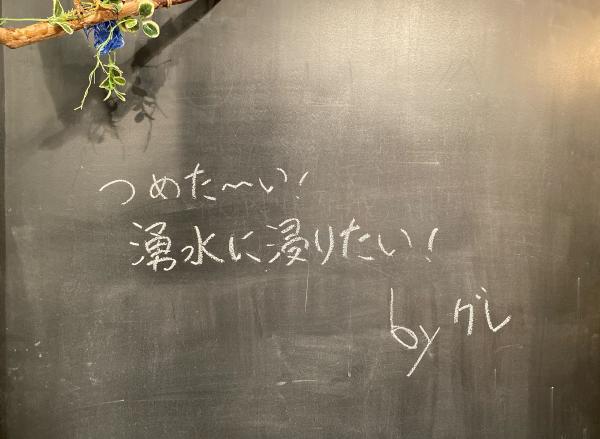 つめた〜い!
湧水に浸りたい!
by グレ